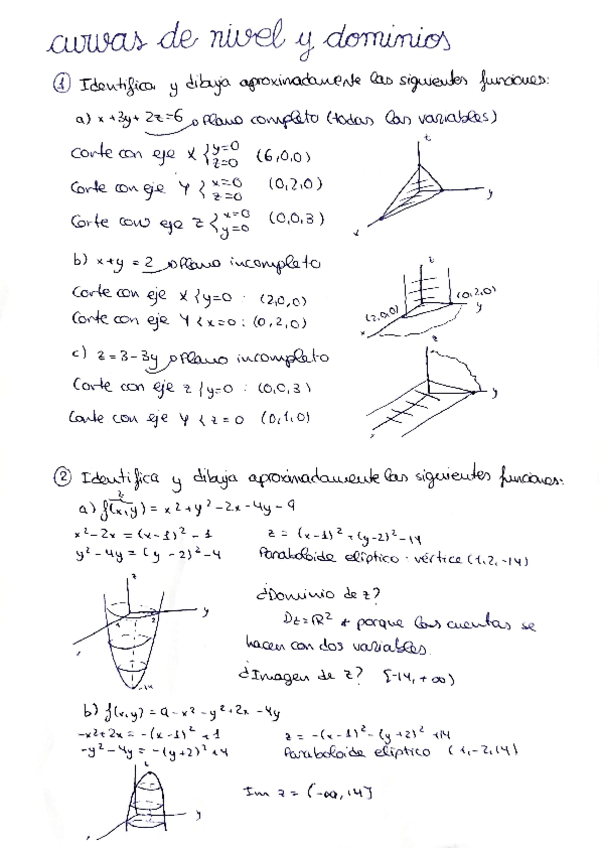 curvas de nivel y dominios
① Identifica y dibuja aproximadamente las siguientes funciones:
a) x + 3y + 2z = 6 → Plano completo (todas las variables)
Corte con eje X { y=0 z=0 (6,0,0)
Corte con eje Y { x=0 z=0 (0,2,0)
Corte con eje Z { x=0 y=0 (0,0,3)
z
y
x
b) x+y = 2 → Plano incompleto
Corte con eje X { y=0 : (2,0,0)
Corte con eje Y { x=0 : (0,2,0)
z
(0,2,0)
(2,0,0)
y
x
c) z = 3-3y → Plano incompleto
Corte con eje z { y=0 : (0,0,3)
Corte con eje Y { z=0 (0,1,0)
z
y
② Identifica y dibuja aproximadamente las siguientes funciones:
z
a) f(x,y) = x2 + y2 - 2x - 4y - 9
x2 - 2x = (x-1)2 - 1
z = (x-1)2 + (y-2)2 - 14
y2 - 4y = (y-2)2 - 4
Paraboloide elíptico · vértice (1,2,-14)
z
y
-14
¿Dominio de z?
Dz = ℝ2 * porque las cuentas se
hacen con dos variables.
¿Imagen de z? [-14, +∞)
b) f(x,y) = 9 - x2 - y2 + 2x - 4y
-x2+2x = -(x-1)2 + 1
z = -(x-1)2 - (y+2)2 + 14
-y2 - 4y = -(y+2)2 + 4
Paraboloide elíptico (1,-2,14)
z
y
Im z = (-∞, 14]